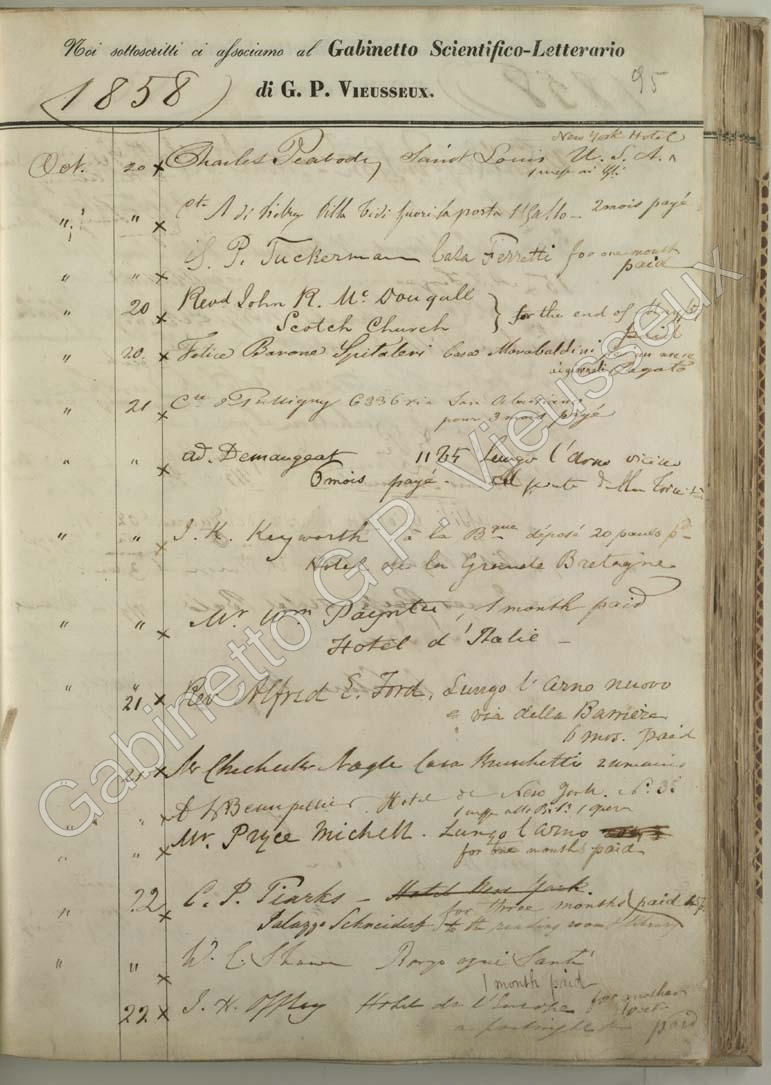 Noi sottoscritti ci associamo al Gabinetto Scientifico-Letterario
di G. P. Vieusseux.
1858
95
New York Hotel
Oct. 20 x Charles Peabody Saint Louis U. S. A.
" " x Cte A di Villa fuori la porta S Gallo - 2 mois payé
" " x S. P. Tuckerman Casa Ferretti for one month
paid
" 20 x Revd John R. Mc Dougall
Scotch Church } for the end of
paid
" 20. x Felice Barone Spitaleri Casa un mese
Pagato
" 21 x 6336 via San
pour 3 mois payé
" " x ad. Demangeat 1185 Lungo l'Arno vicino
6 mois payé. ponte
" " x J. K. Keyworth à la Bque déposé 20 pauls
Hotel de la Grande Bretagne
" " x Mr Wm Paynter, 1 month paid
Hotel d'Italie -
" 21 x Rev Alfred E. Ford, Lungo l'Arno nuovo
e via della Barriera
6 mos. paid
21 x Mr Chichester Nagle Casa
" " Hotel de New York. No. 3
" x Mr. Pryce Michell. Lungo l'Arno
for months paid
" 22 x C. P. Tiarks - Hotel New York.
for three months paid
Palazzo Schneiderf to the reading room & library
" " x W. C. Borgo ogni Santi
1 month paid
22 x J. H. Offley Hotel de l'Europe for
a fortnight paid
Gabinetto G.P. Vieusseux